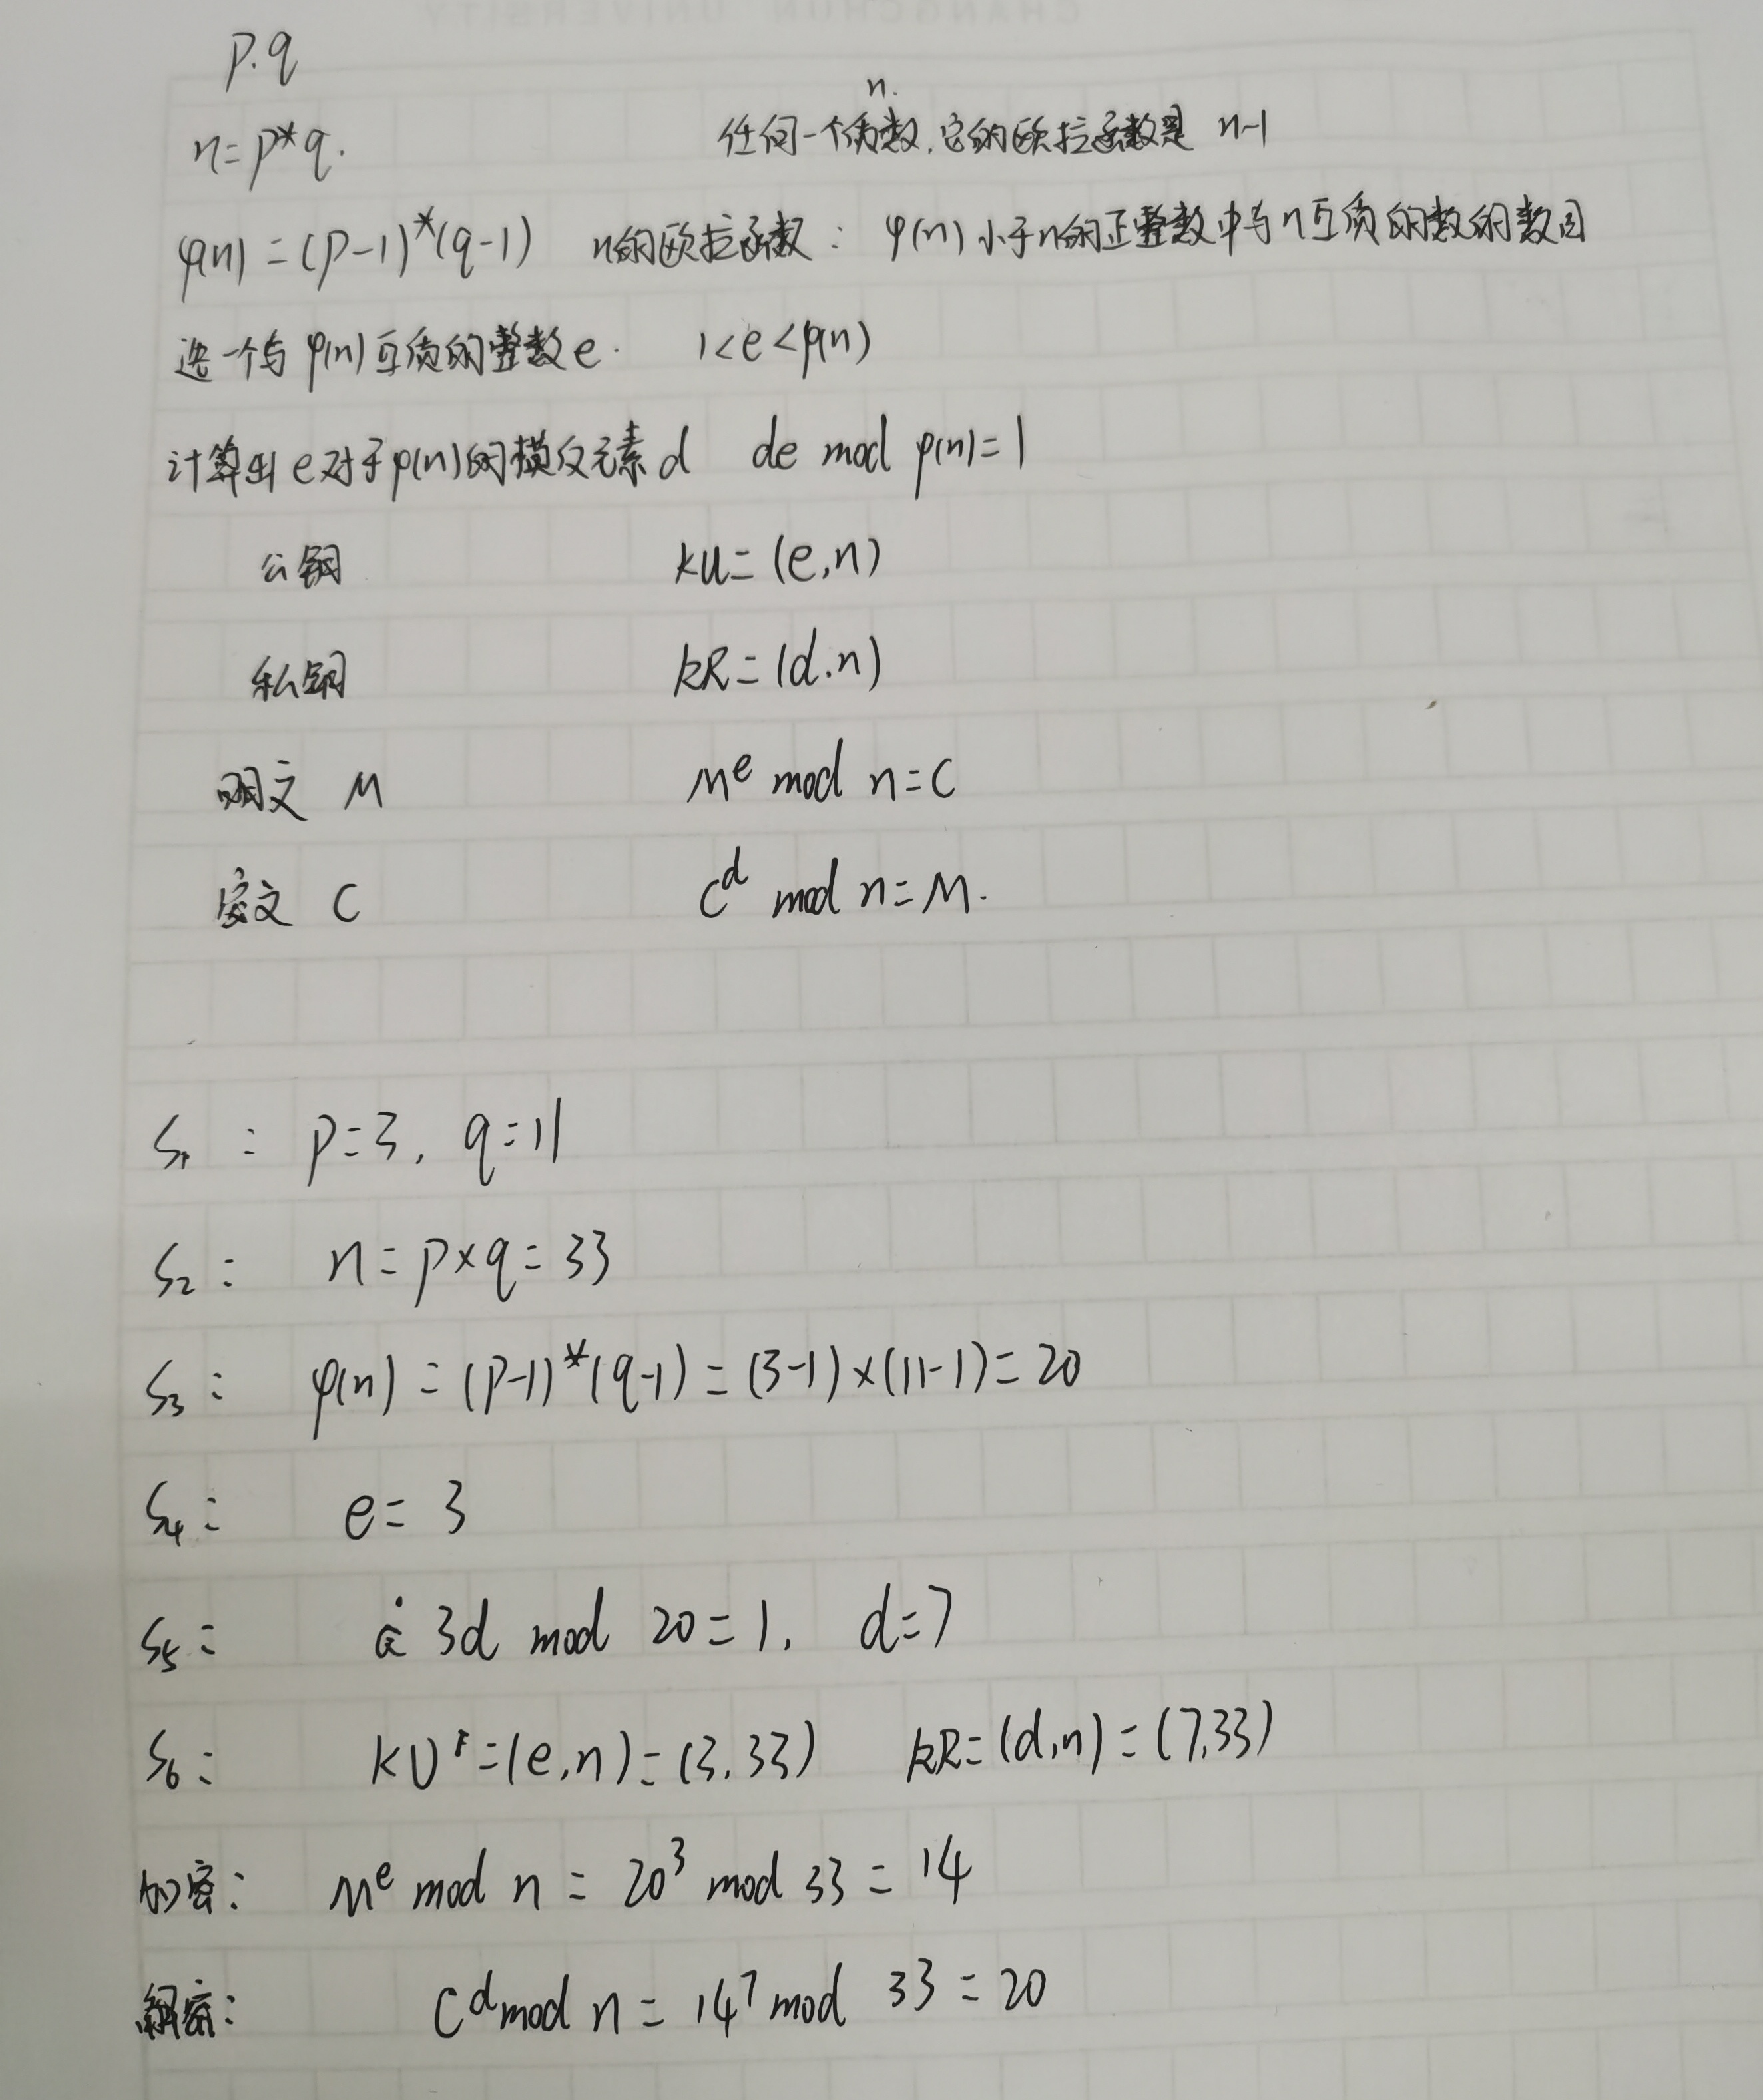 p.q
n=p*q.
任何一个质数n.它的欧拉函数是 n-1
φ(n)=(p-1)*(q-1) n的欧拉函数: φ(n)小于n的正整数中与n互质的数的数目
选一个与φ(n)互质的整数e. 1<e<φ(n)
计算出e对于φ(n)的模反元素d de mod φ(n)=1
公钥 KU=(e,n)
私钥 KR=(d.n)
明文 M Mᵉ mod n=C
密文 C Cᵈ mod n=M.
S₁: p=3, q=11
S₂: n=p×q=33
S₃: φ(n)=(p-1)*(q-1)=(3-1)×(11-1)=20
S₄: e=3
S₅: 3d mod 20=1, d=7
S₆: KU=(e,n)=(3,33) KR=(d,n)=(7,33)
加密: Mᵉ mod n = 20³ mod 33 = 14
解密: Cᵈ mod n = 14⁷ mod 33 = 20